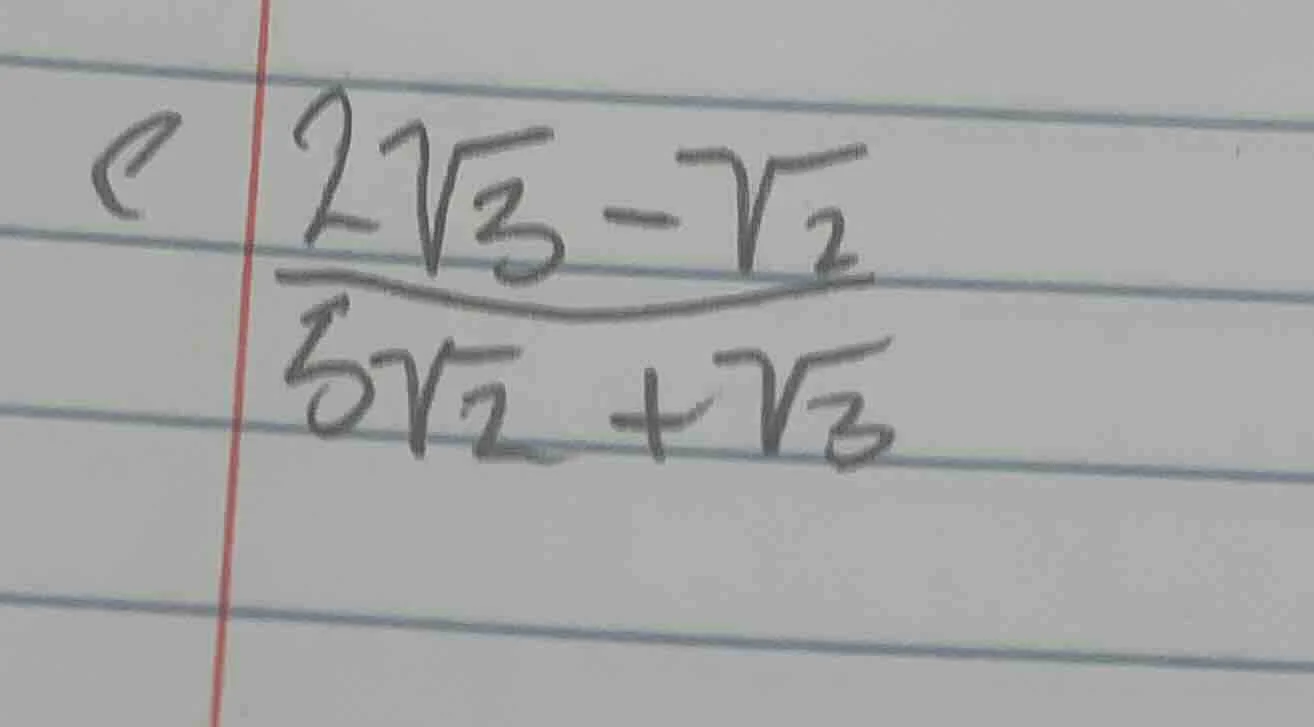 c 2√3 - √2
5√2 + √3